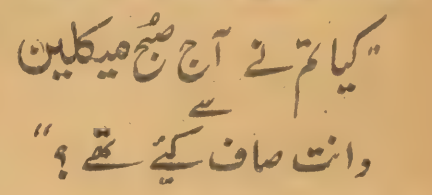 "کیا تم نے آج صبح میکلین
سے
دانت صاف کیٔے تھے؟"